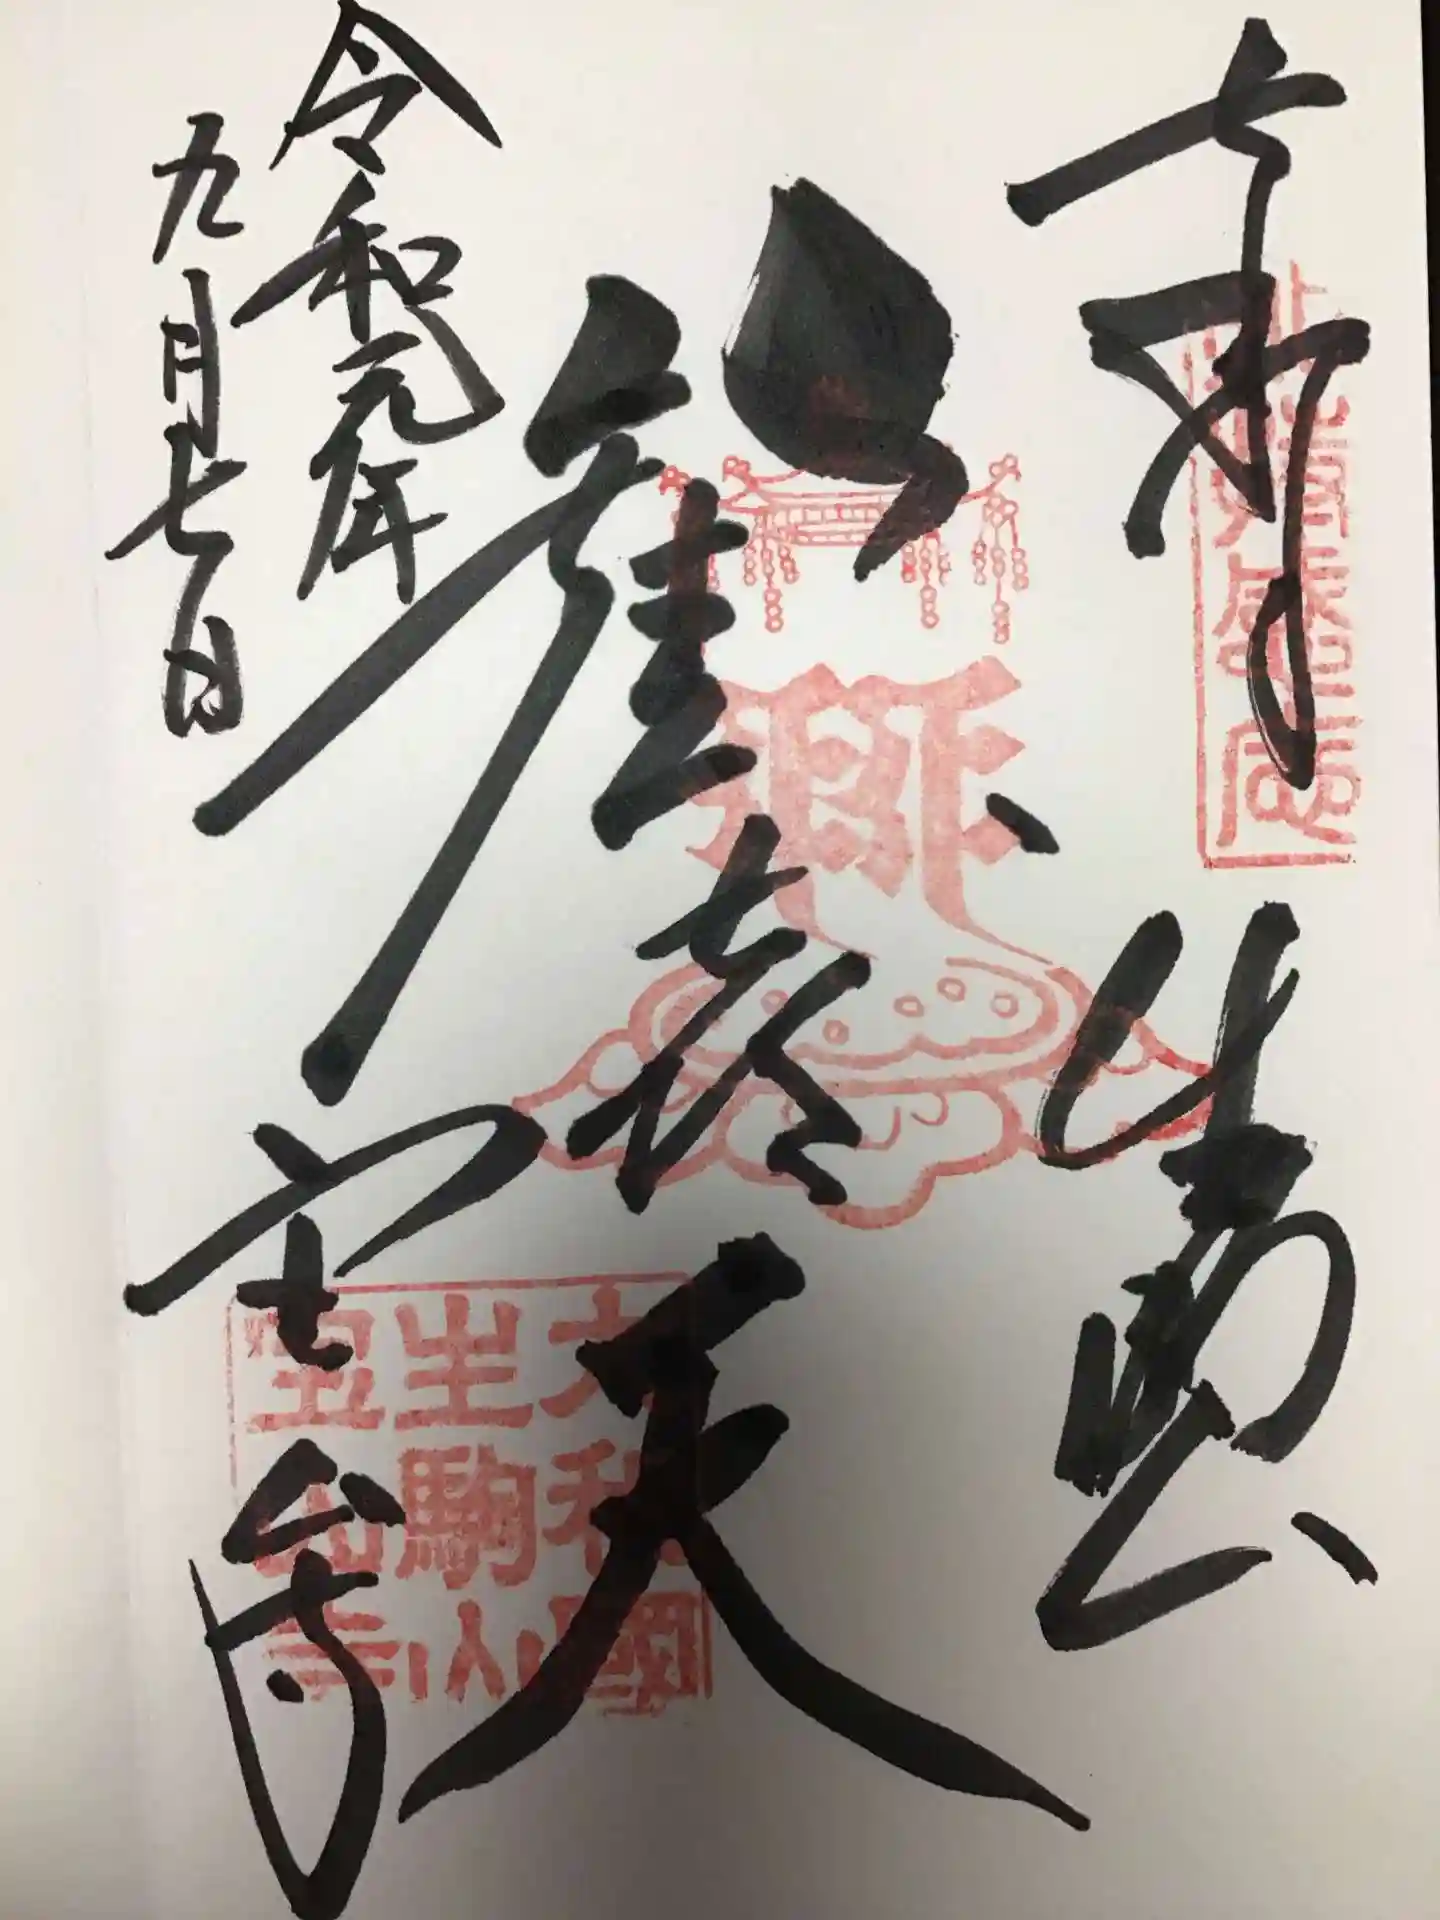 奉
歓喜天
宝山寺
令和元年
九月七日
大和國
生駒山
宝山寺